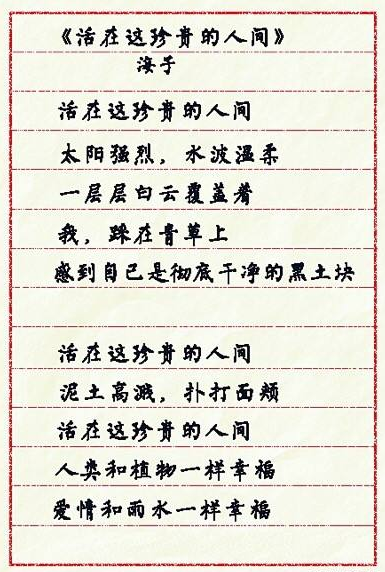 《活在这珍贵的人间》
海子
活在这珍贵的人间
太阳强烈，水波温柔
一层层白云覆盖着
我，踩在青草上
感到自己是彻底干净的黑土块
活在这珍贵的人间
泥土高溅，扑打面颊
活在这珍贵的人间
人类和植物一样幸福
爱情和雨水一样幸福